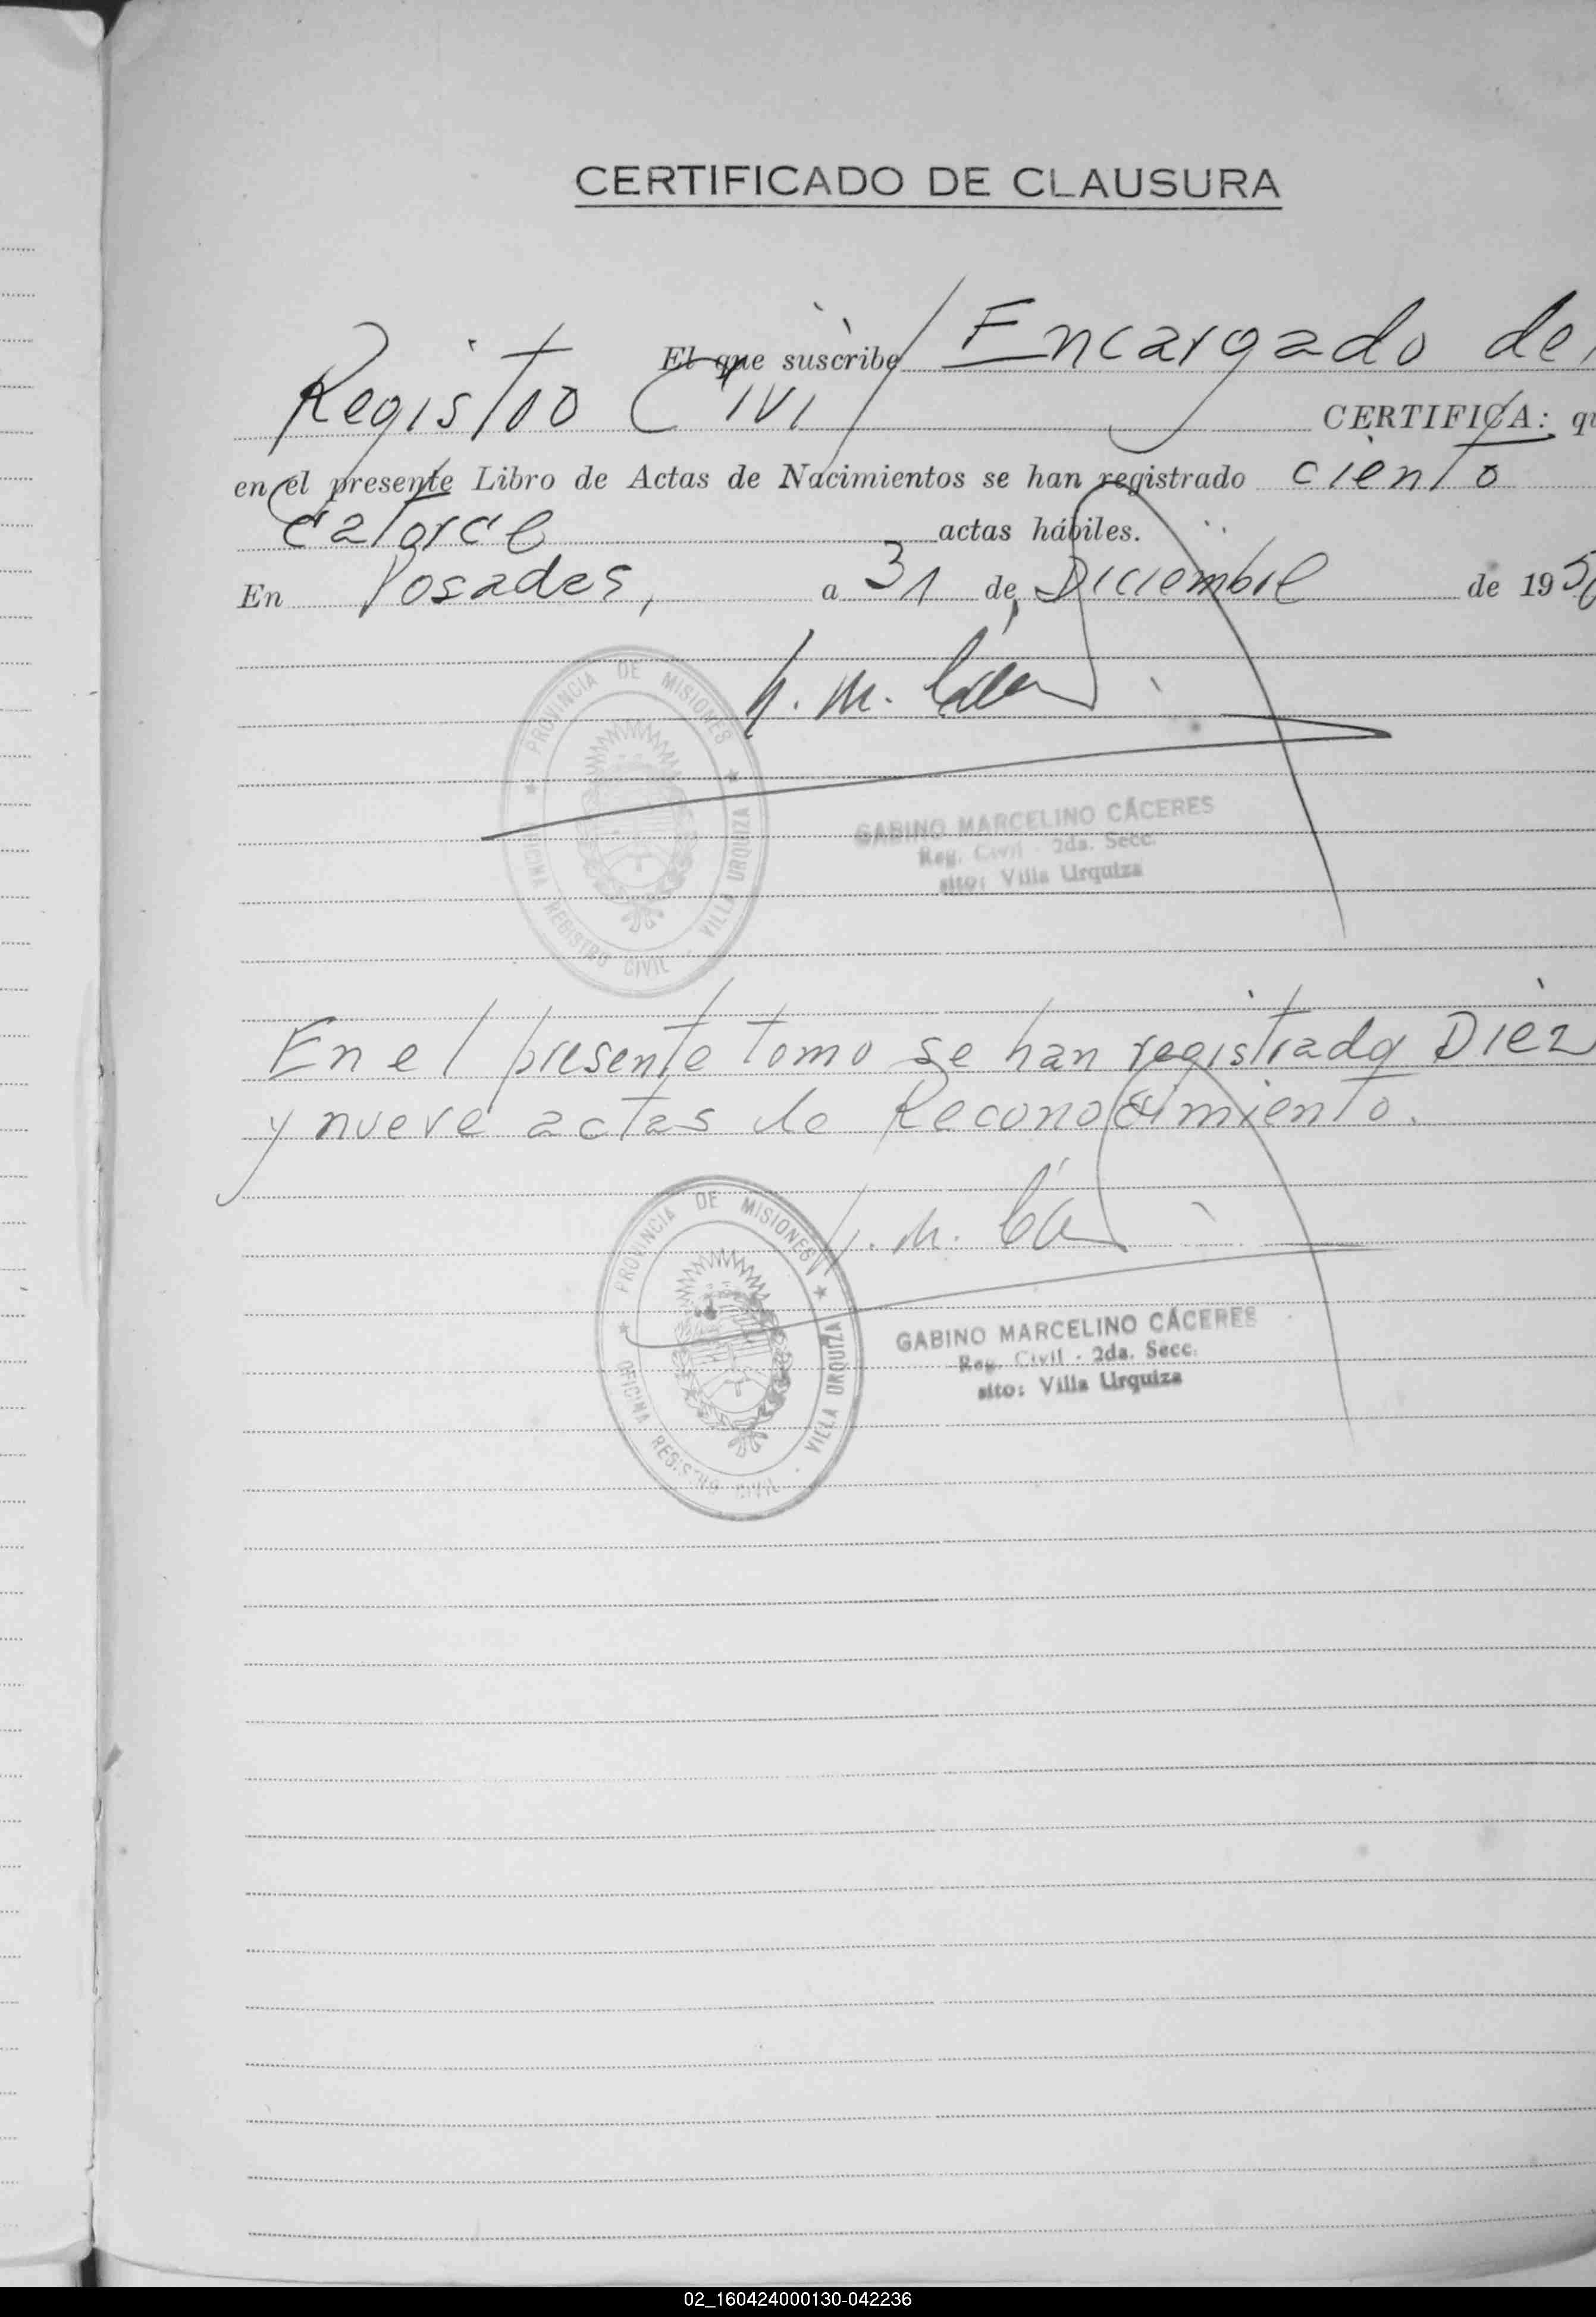 CERTIFICADO DE CLAUSURA
El que suscribe Encargado del
Registro Civil CERTIFICA: qu
en el presente Libro de Actas de Nacimientos se han registrado ciento
catorce actas hábiles.
En Posadas, a 31 de Diciembre de 195
PROVINCIA DE MISIONES
OFICINA REGISTRO CIVIL - VILLA URQUIZA
GABINO MARCELINO CÁCERES
Reg. Civil - 2da. Secc.
sito: Villa Urquiza
En el presente tomo se han registrado Diez
y nueve actas de Reconocimiento.
PROVINCIA DE MISIONES
OFICINA REGISTRO CIVIL - VILLA URQUIZA
GABINO MARCELINO CÁCERES
Reg. Civil - 2da. Secc.
sito: Villa Urquiza
02_160424000130-042236